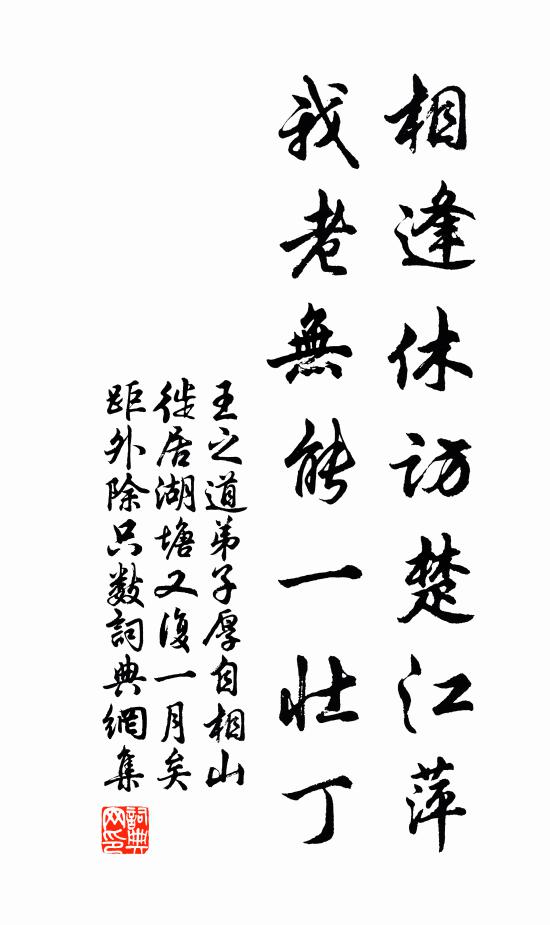 相逢休訪楚江萍
我老無能一壯丁
王之道弟子厚自相山
徙居湖塘又復一月矣
距外除只數詞典網集
詞典网印